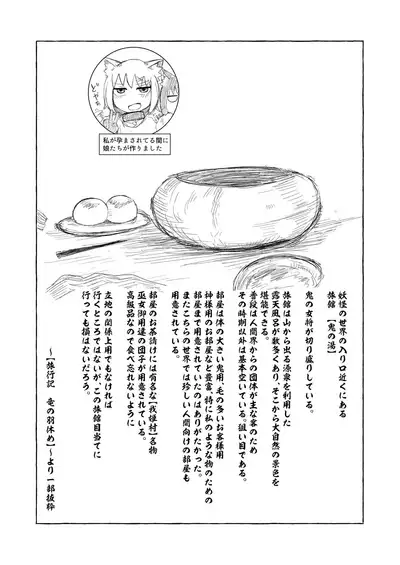 どやぁ
私が孕まされてる間に
娘たちが作りました
妖怪の世界の入り口近くにある
旅館【鬼の湯】
鬼の女将が切り盛りしている。
旅館は山から出る源泉を利用した
露天風呂が数多くあり、そこから大自然の景色を
堪能できる。
普段は人間界からの団体が主な客のため
その時期以外は基本空いている。狙い目である。
部屋は体の大きい鬼用、毛の多いお客様用
神様用のお部屋など豊富、特に私のような物のための
部屋まで用意されていたのはありがたかった。
またこちらの世界では珍しい人間向けの部屋も
用意されている。
部屋のお茶請けには有名な【我狸村】名物
巫女御用達の団子が用意されている。
高級品なので食べ忘れないように
立地の関係上用でもなければ
行くところではないが、この旅館目当てに
行っても損はないだろう。
～【旅行記　竜の羽休め】～より一部抜粋